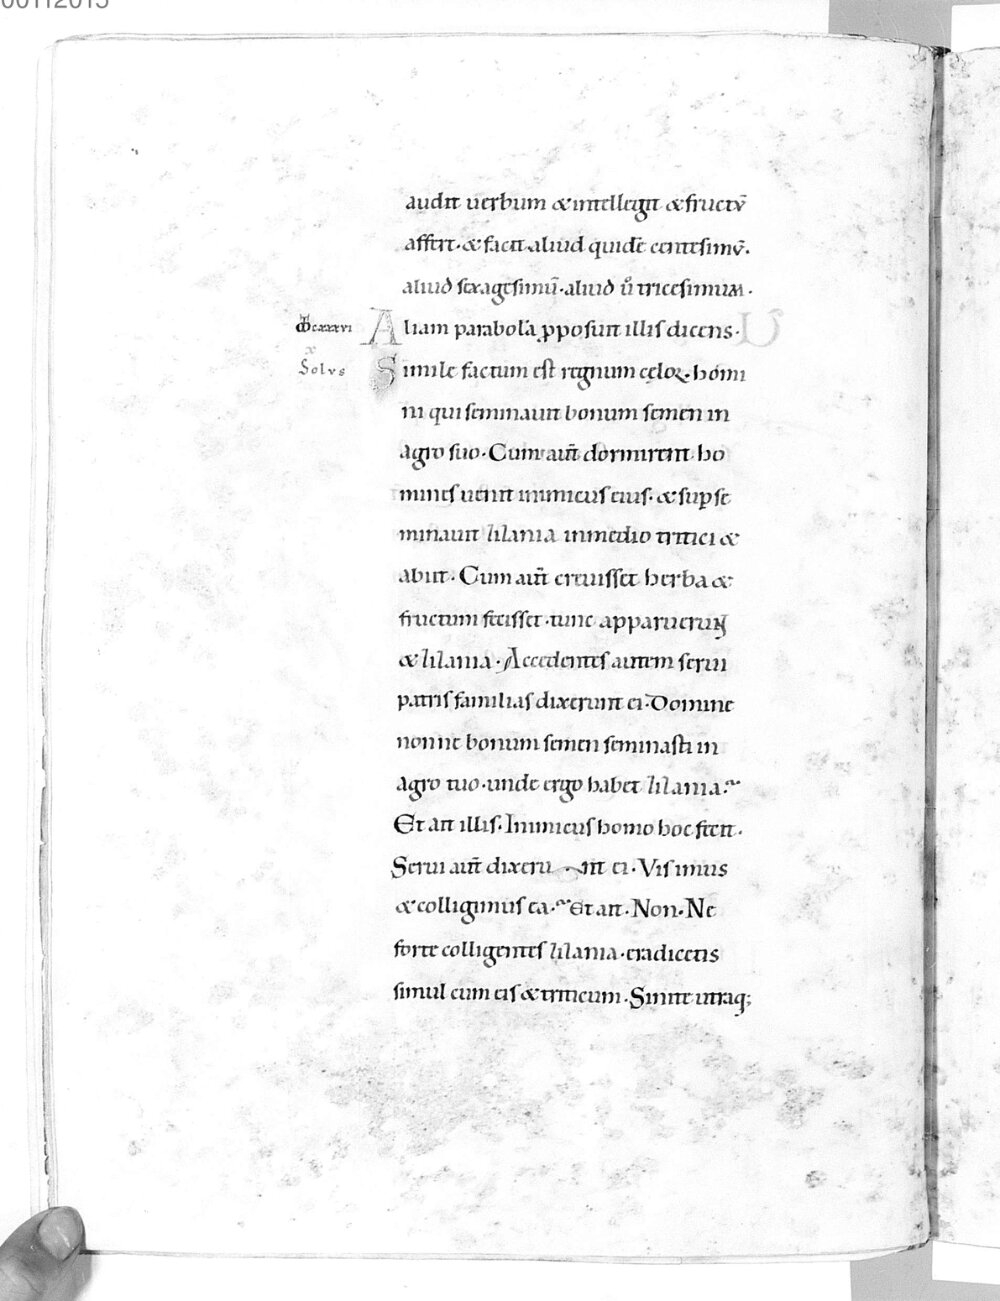 audit uerbum & intellegit & fructū
affert · & facit aliud quidē centesimū ·
aliud sexagesimū · aliud ū tricesimum ·
Aliam parabolā pposuit illis dicens ·
Solus
Simile factum est regnum cęloꝝ · homi
ni qui seminauit bonum semen in
agro suo · Cum aut̄ dormirent ho
mines uenit inimicus eius · & sup se
minauit lilania inmedio tritici &
abiit · Cum aut̄ creuisset herba &
fructum fecisset · tunc apparuerunt
& lilania · Accedentes autem serui
patris familias dixerunt ei · Domine
nonne bonum semen seminasti in
agro tuo · unde ergo habet lilania ·
Et ait illis · Inimicus homo hoc fecit ·
Serui aut̄ dixerunt ei · Vis imus
& colligimus ea · Et ait · Non · Ne
forte colligentes lilania · eradicetis
simul cum eis & triticum · Sinite utraq;